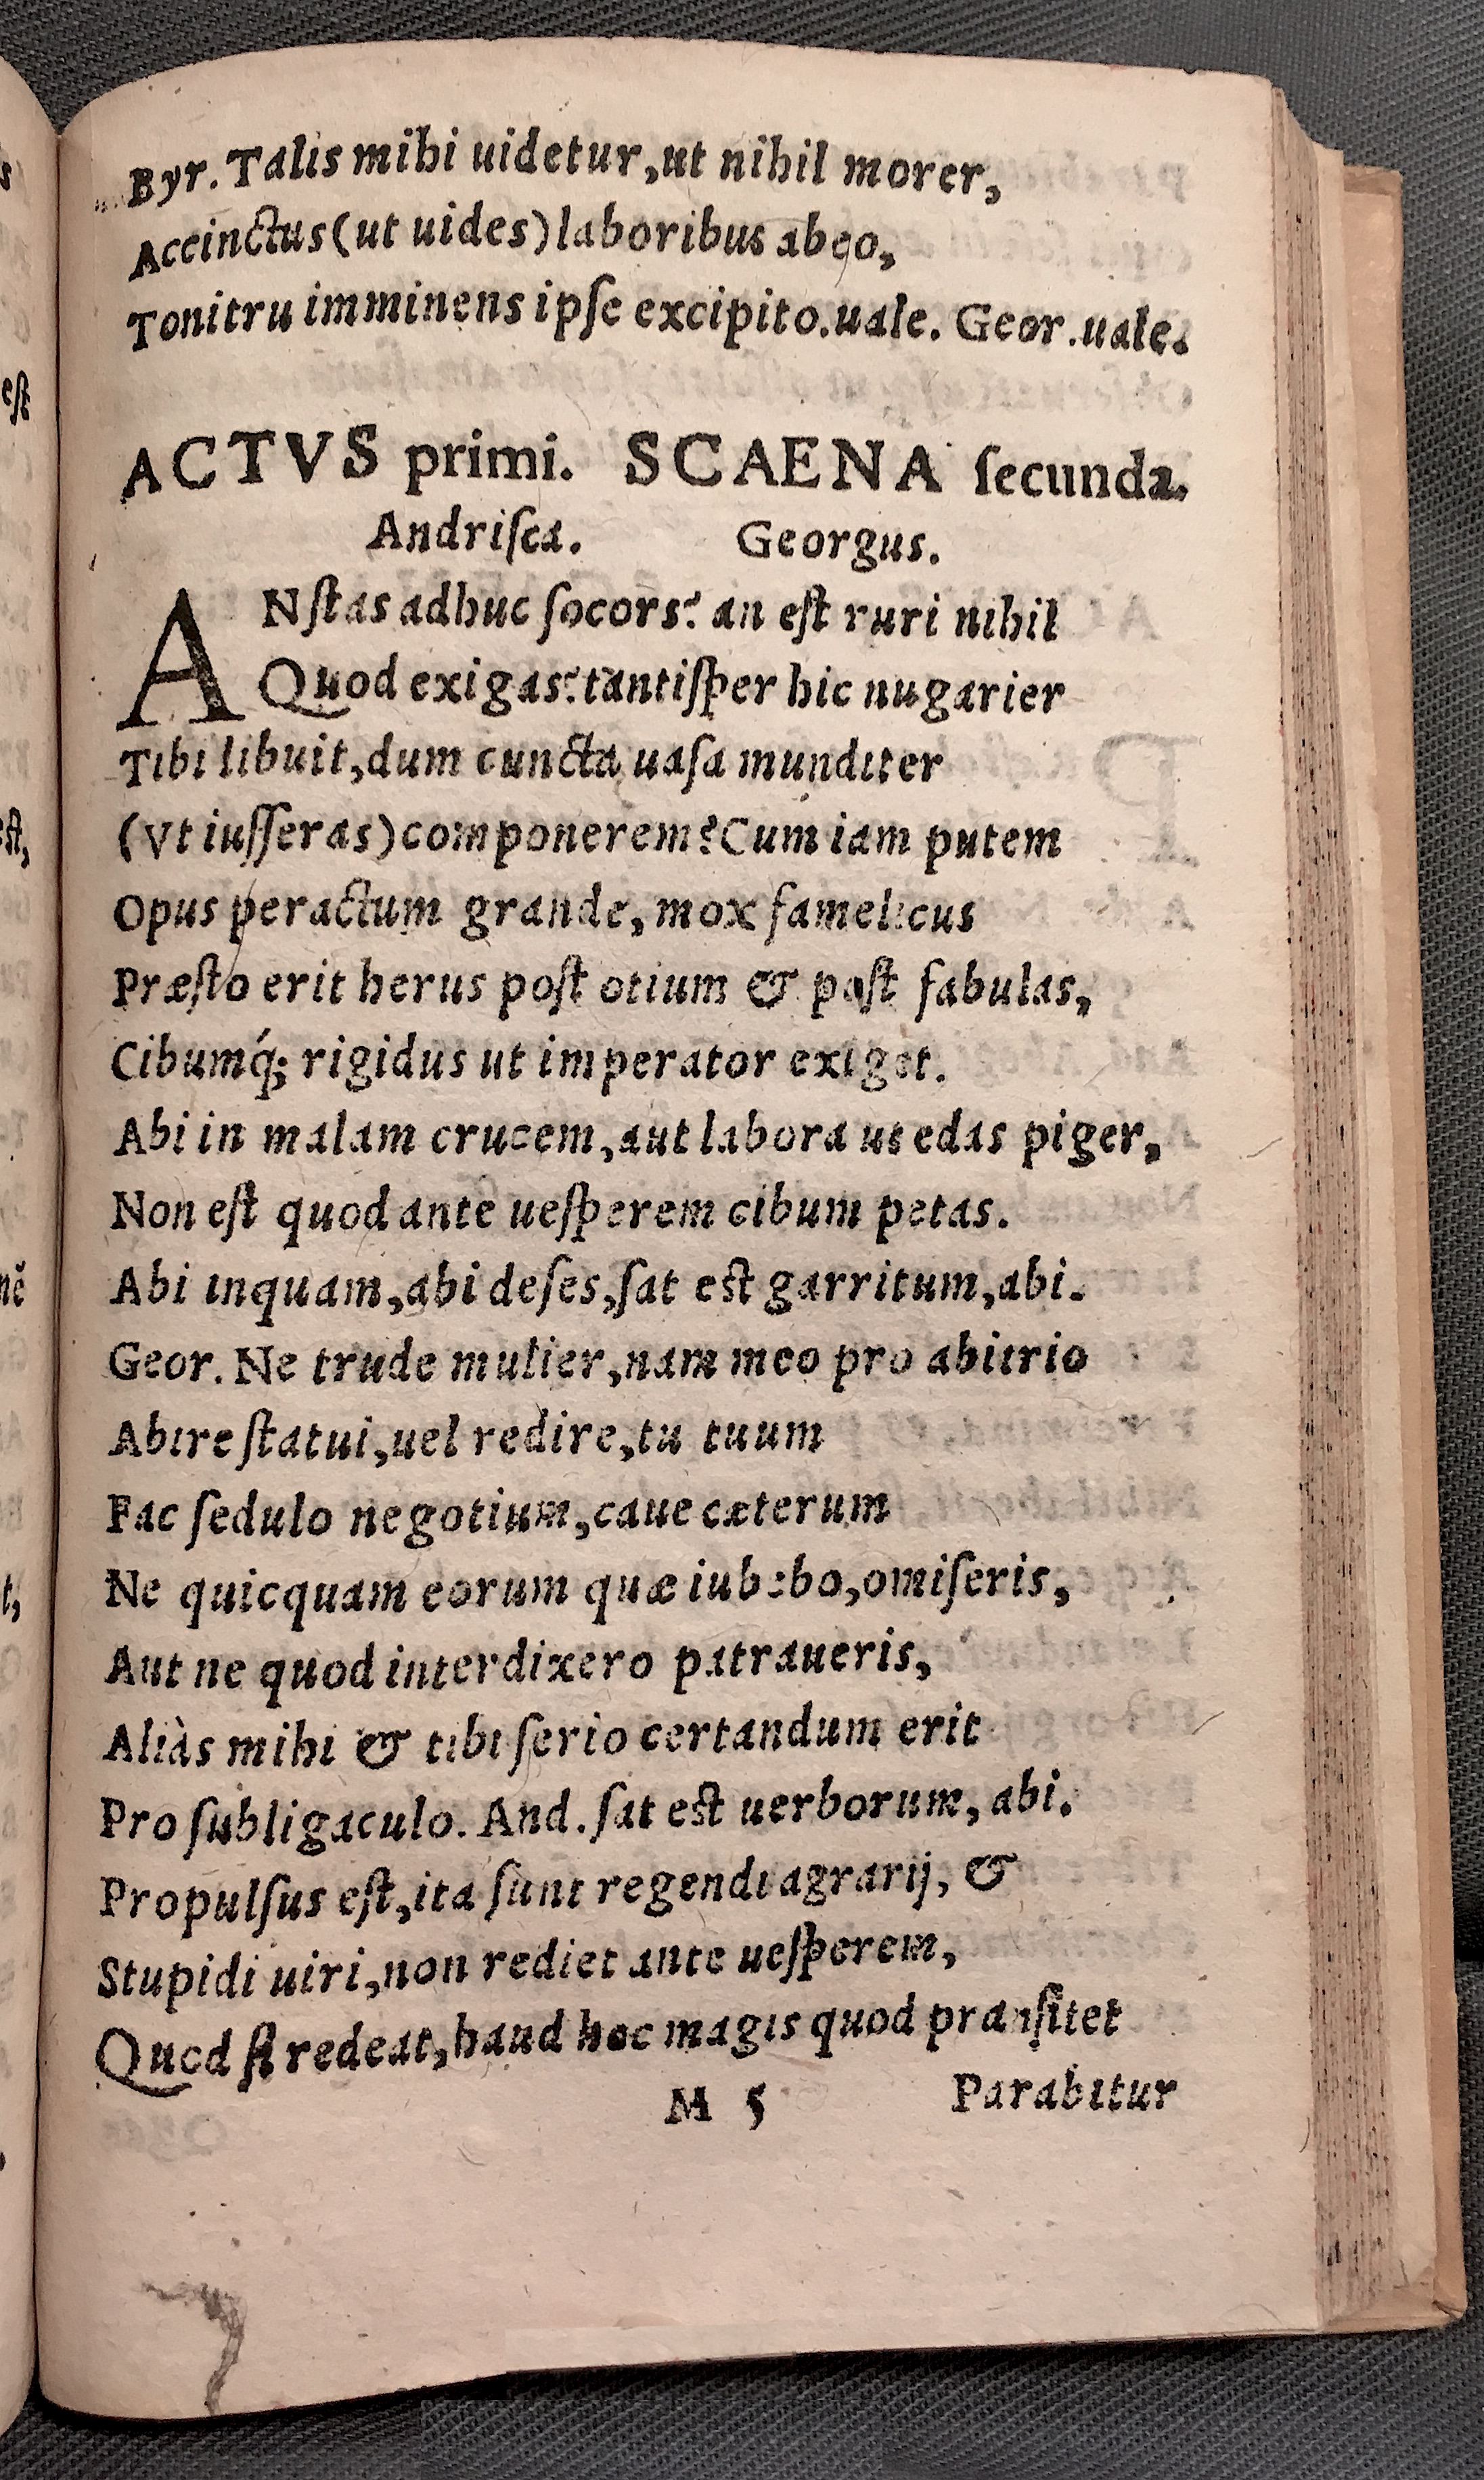 Byr. Talis mihi uidetur, ut nihil morer,
Accinctus (ut uides) laboribus abeo,
Tonitru imminens ipſe excipito. uale. Geor. uale.
ACTVS primi. SCAENA ſecunda.
Andriſca. Georgus.
ANſtas adhuc ſocors? an eſt ruri nihil
Quod exigas? tantiſper hic nugarier
Tibi libuit, dum cuncta uaſa munditer
(Vt iuſſeras) componerem? Cum iam putem
Opus peractum grande, mox famelicus
Præſto erit herus poſt otium & poſt fabulas,
Cibumq́; rigidus ut imperator exiget.
Abi in malam crucem, aut labora ut edas piger,
Non eſt quod ante ueſperem cibum petas.
Abi inquam, abi deſes, ſat est garritum, abi.
Geor. Ne trude mulier, nam meo pro abitrio
Abire ſtatui, uel redire, tu tuum
Fac ſedulo negotium, caue cæterum
Ne quicquam eorum quæ iubebo, omiſeris,
Aut ne quod interdixero patraueris,
Aliàs mihi & tibi ſerio certandum erit
Pro ſubligaculo. And. ſat est uerborum, abi.
Propulſus eſt, ita ſunt regendi agrarij, &
Stupidi uiri, non rediet ante ueſperem,
Quod ſi redeat, haud hoc magis quod pranſitet
M 5 Parabitur